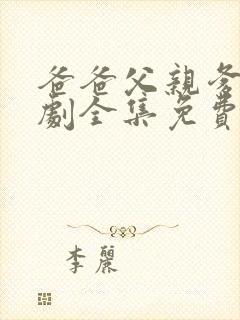 爸爸父親爹
劇全集免費
李麗